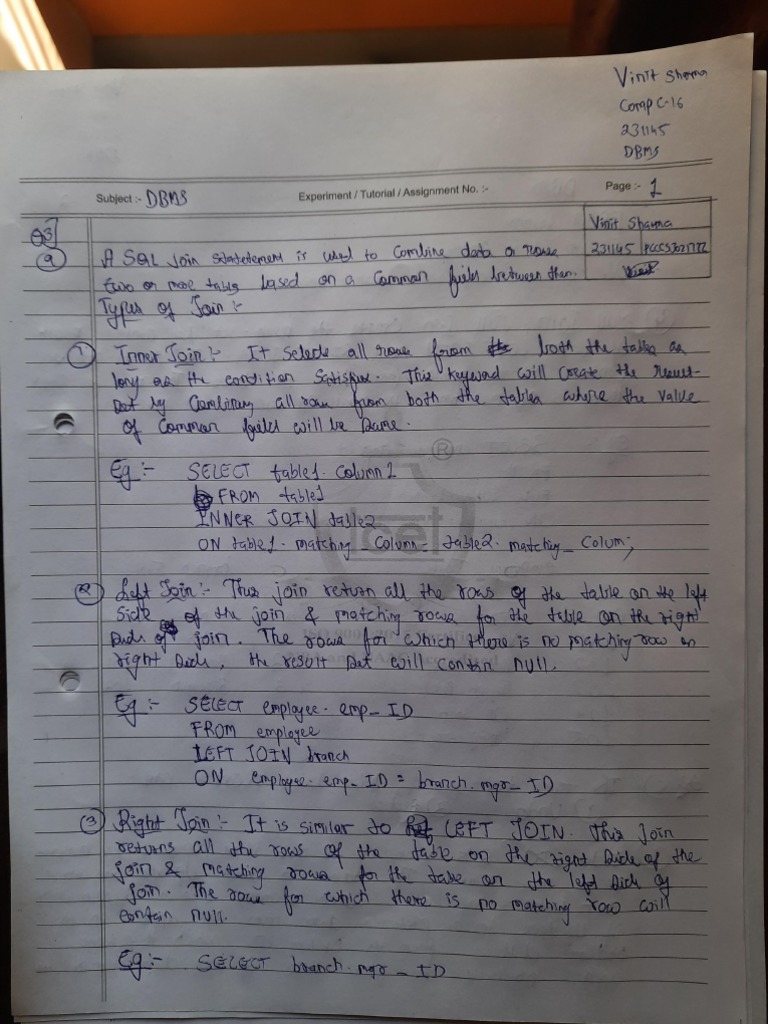 Vinit Sharma
Comp C-16
231145
DBMS
Subject :- DBMS
Experiment / Tutorial / Assignment No. :-
Page :- 1
Vinit Sharma
231145
Q3]
a A SQL Join statetement is used to combine data or rows
two or more table based on a common fields between them.
Types of Join :-
1 Inner Join :- It selects all rows from both the tables as
long as the condition satisfies. This keyword will create the result-
set by combining all rows from both the tables where the value
of common fields will be same.
R
Eg :- SELECT table1. column1
FROM table1
INNER JOIN table2
ON table1. matching_column = table2. matching_colum;
2 Left Join :- This join return all the rows of the table on the left
side of the join & matching rows for the table on the right
side of join. The rows for which there is no matching row on
right side, the result set will contain null.
Eg :- SELECT employee. emp_ID
FROM employee
LEFT JOIN branch
ON employee. emp_ID = branch. mgr_ID
3 Right Join :- It is similar to LEFT JOIN. This Join
returns all the rows of the table on the right side of the
join & matching rows for the table on the left side of
join. The rows for which there is no matching row will
contain null.
Eg :- SELECT branch. mgr_ID